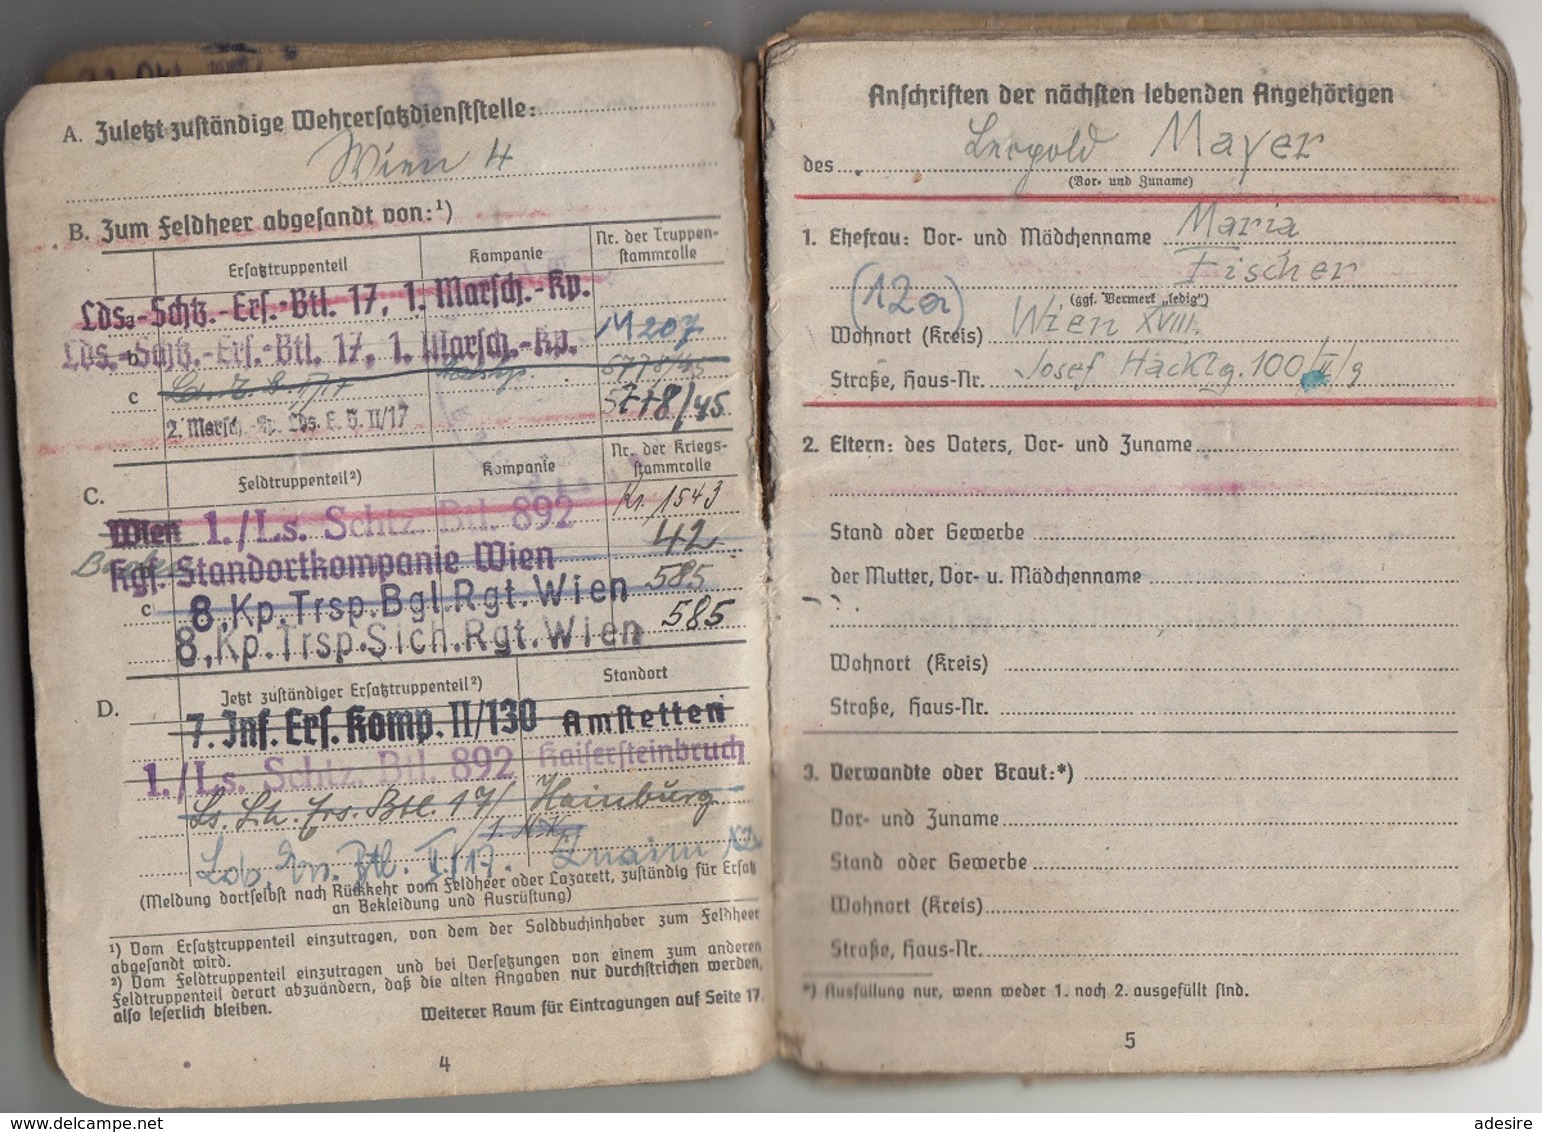 A. Zuletzt zuständige Wehrersatzdienststelle:
Wien 4
B. Zum Feldheer abgesandt von:¹)
Ersatztruppenteil Kompanie Nr. der Truppenstammrolle
Lds.-Schtz.-Ers.-Btl. 17, 1. Marsch.-Kp.
a
Lds.-Schtz.-Ers.-Btl. 17, 1. Marsch.-Kp. M 207
b
c 5778/45
2. Marsch.-Kp. Lds. E. B. II/17 5778/45
C. Feldtruppenteil²) Kompanie Nr. der Kriegsstammrolle
Wien 1./Ls. Schtz. Btl. 892 Kr. 1543
Kgf.-Standortkompanie Wien 42
8.Kp.Trsp.Bgl.Rgt.Wien 585
c
8.Kp.Trsp.Sich.Rgt.Wien 585
D. Jetzt zuständiger Ersatztruppenteil²) Standort
7. Inf. Ers. Komp. II/130 Amstetten
1./Ls. Schtz. Btl. 892 Kaisersteinbruch
Ls. Sch. Ers. Btl. 17/ Hainburg
Btl. II/17. Znaim
(Meldung dortselbst nach Rückkehr vom Feldheer oder Lazarett, zuständig für Ersatz
an Bekleidung und Ausrüstung)
¹) Vom Ersatztruppenteil einzutragen, von dem der Soldbuchinhaber zum Feldheer
abgesandt wird.
²) Vom Feldtruppenteil einzutragen und bei Versetzungen von einem zum anderen
Feldtruppenteil derart abzuändern, daß die alten Angaben nur durchstrichen werden,
also leserlich bleiben.
Weiterer Raum für Eintragungen auf Seite 17.
4
Anschriften der nächsten lebenden Angehörigen
des Leopold Mayer
(Vor- und Zuname)
1. Ehefrau: Vor- und Mädchenname Maria
Fischer
(12a) (ggf. Vermerk „ledig")
Wohnort (Kreis) Wien XVIII.
Straße, Haus-Nr. Josef Hacklg. 100/II/9
2. Eltern: des Vaters, Vor- und Zuname
Stand oder Gewerbe
der Mutter, Vor- u. Mädchenname
Wohnort (Kreis)
Straße, Haus-Nr.
3. Verwandte oder Braut:*)
Vor- und Zuname
Stand oder Gewerbe
Wohnort (Kreis)
Straße, Haus-Nr.
*) Ausfüllung nur, wenn weder 1. noch 2. ausgefüllt sind.
5
www.delcampe.net
adesire